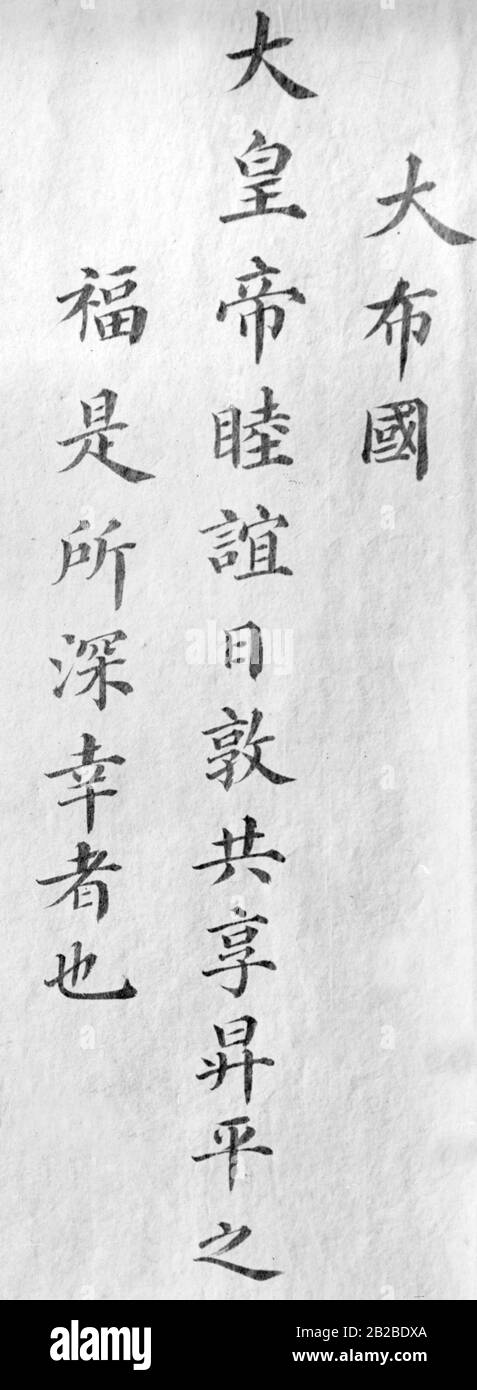 大布國
大皇帝睦誼日敦共享昇平之
福是所深幸者也
alamy
Image ID: 2B2BDXA
www.alamy.com